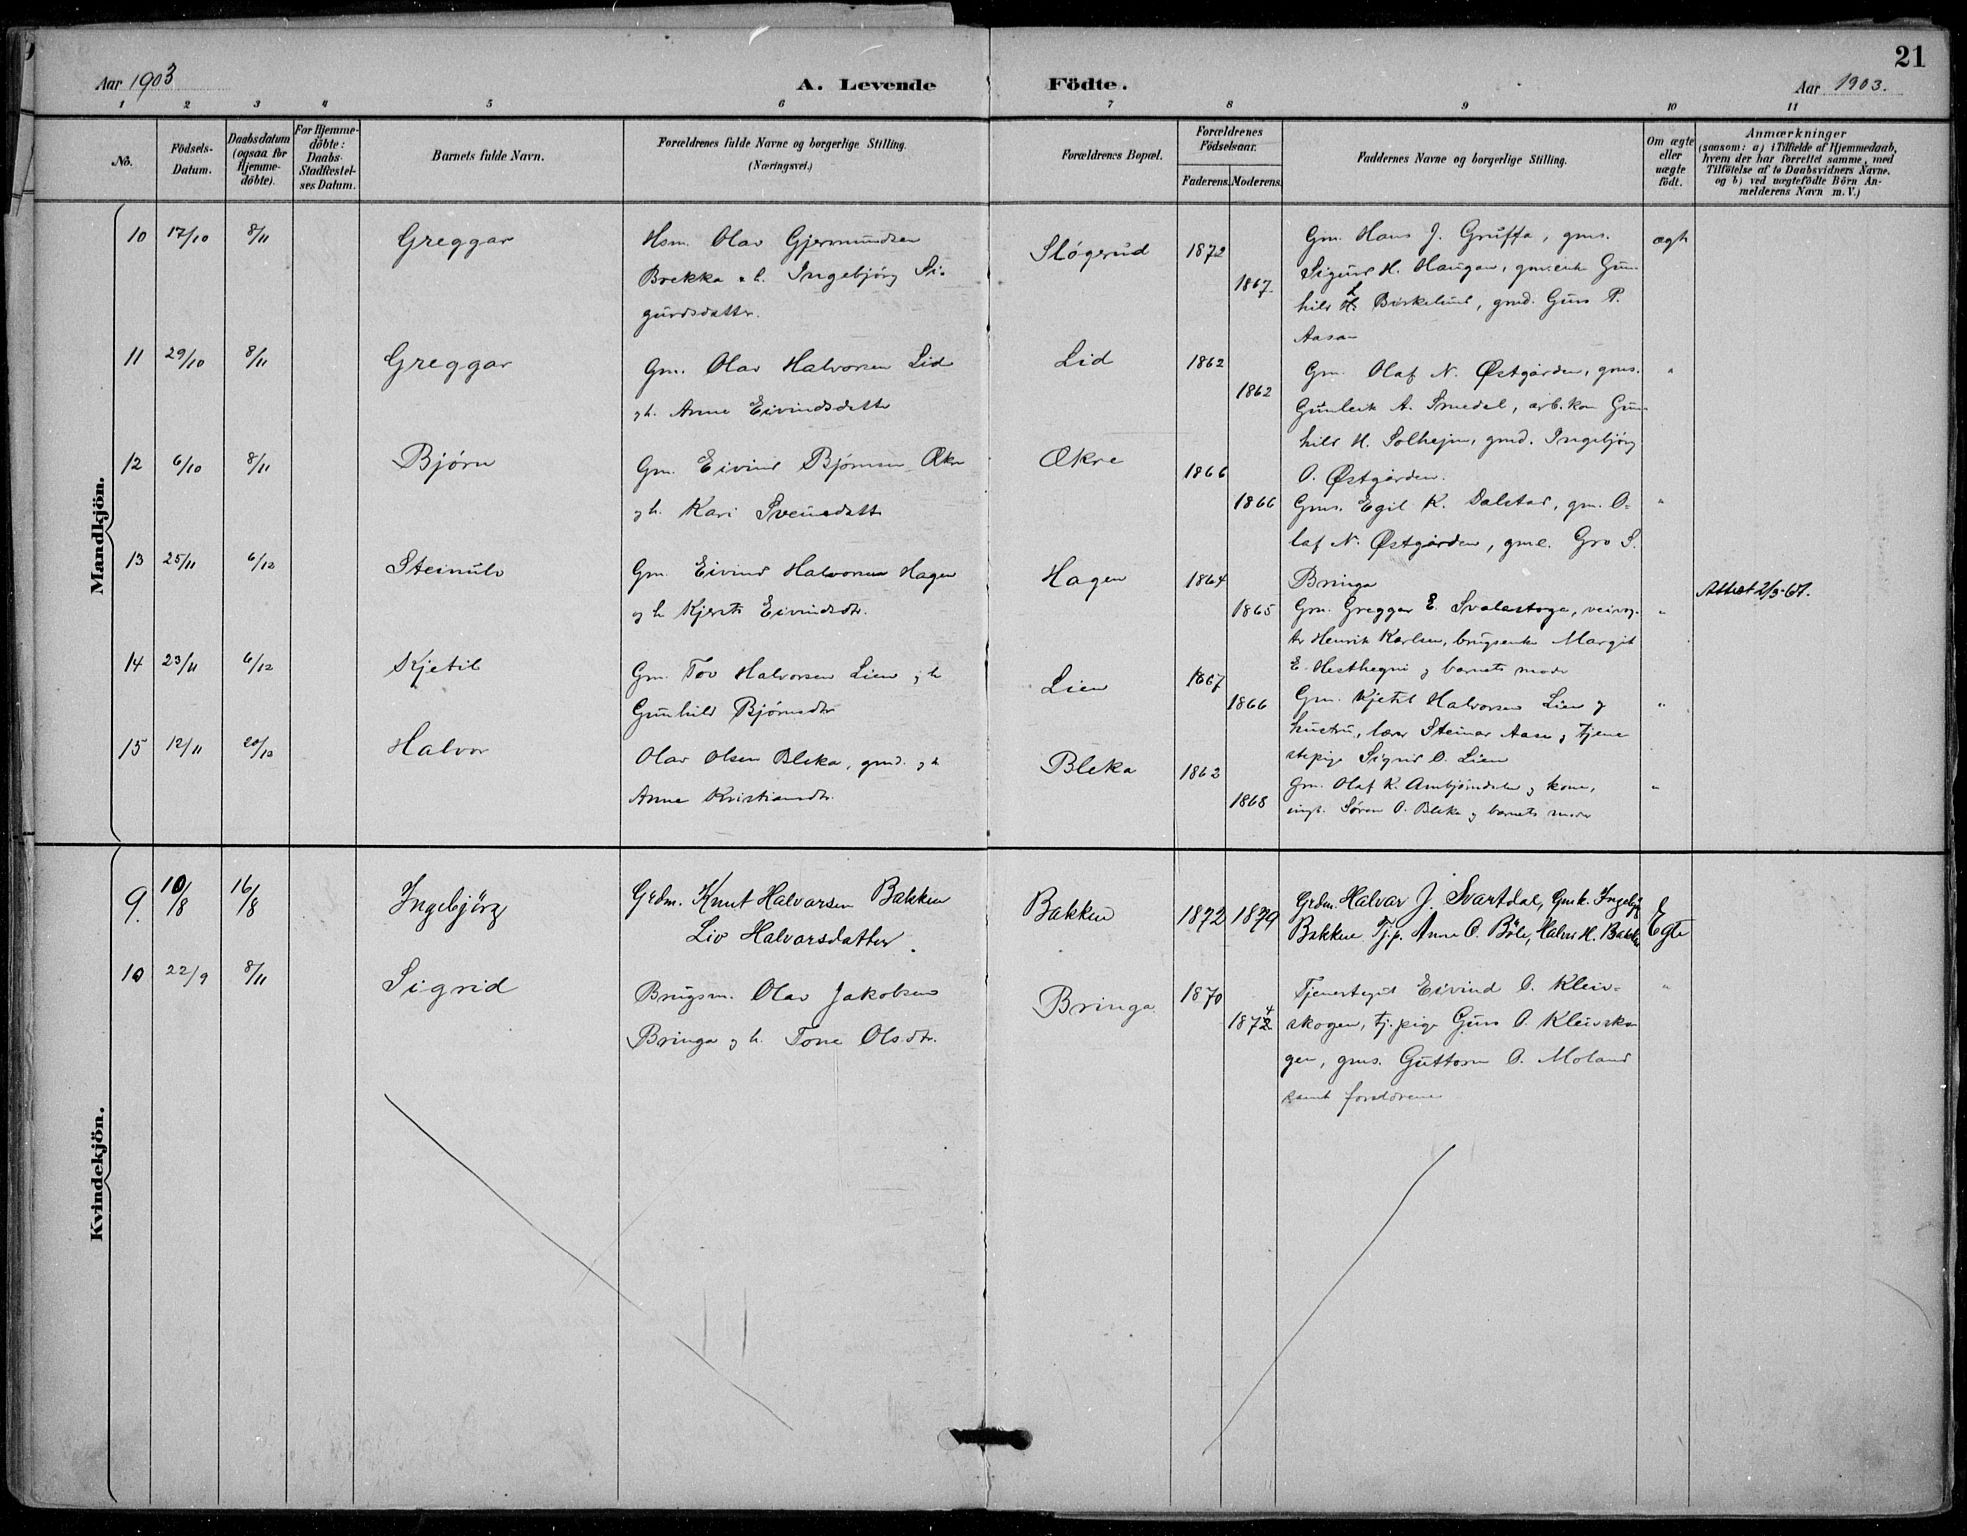 21
Aar 1903
A. Levende Födte.
Aar 1903.
1 2 3 4 5 6 7 8 9 10 11
No.
Födsels-Datum.
Daabsdatum (ogsaa for Hjemme-döbte).
For Hjemme-döbte: Daabs-Stadfæstel-ses Datum.
Barnets fulde Navn.
Forældrenes fulde Navne og borgerlige Stilling.
(Næringsvei.)
Forældrenes Bopæl.
Forældrenes Födselsaar.
Faderens. Moderens.
Faddernes Navne og borgerlige Stilling.
Om ægte eller uægte født.
Anmærkninger
(saasom: a) i Tilfælde af Hjemmedaab,
hvem der har forrettet samme, med
Tilföielse af to Daabsvidners Navne,
og b) ved uægtefödte Börn An-
melderens Navn m. V.)
Mandkjön.
10 17/10 8/11 Greggar
Hsm. Olav Gjermundsen
Brekka o. h. Ingebjörg Si-
gurdsdatter.
Slógerud 1872
1867.
Gm. Hans J. Gruffa, gms.
Sigurd H. Haugan, gm.enke Gun-
hild H. Birkelund, gmd. Guro P.
Aasan
ægte
11 29/10 8/11 Greggar
Gm. Olav Halvorsen Lid
og h. Anne Eivindsdatter
Lid 1862
1862
Gm. Olaf N. Østgården, gms.
Gunleik A. Smedal, arb.kone Gun-
hild H. Solhejm, gmd. Ingebjörg
O. Østgården.
"
12 6/10 8/11 Bjørn
Gm. Eivind Bjørnsen Økre
og h. Kari Sveinsdatter
Økre 1866
1866
Gms. Egil K. Dalstad, gm. O-
laf N. Østgården, gme. Gro S.
Bringa
"
13 25/11 6/12 Steinulv
Gm. Eivind Halvorsen Hagen
og h. Kjersti Eivindsdtr.
Hagen 1864
1865
Gm. Greggar E. Svalastoga, veivog-
ter Henrik Karlsen, brugsenke Margit
E. Hesthegni og barnets moder
"
Attest 2/5-67.
14 23/11 6/12 Kjetil
Gm. Tov Halvorsen Lien og h
Gunhild Bjørnsdtr
Lien 1867
1866
Gm. Kjetil Halvorsen Lien og
hustru, lærer Steinar Aase og tjene
stepige Sigrid O. Lien
"
15 12/11 20/12 Halvor
Olav Olsen Bleka, gmd. og h
Anne Kristiansdtr.
Bleka 1862
1868
Gm. Olaf K. Ambjörndalen og kone,
ungk. Søren O. Bleka og barnets moder
"
Kvindekjön.
9. 10/8 16/8 Ingebjörg
Grdm. Knut Halvarsen Bakken
Liv Halvarsdatter.
Bakken 1872 1879
Grdm. Halvar J. Svartdal, Gmk. Ingebj.
Bakken Tj.p. Anne O. Böle, Halvor H. Bakken
Egte
10 22/9 8/11 Sigrid
Brugsm. Olav Jakobsen
Bringa og h. Tone Olsdtr.
Bringa 1870
1874
Tjenestegut Eivind O. Kleiv-
skogen, tj.pige Guro O. Kleivsko-
gen, gms. Guttorm O. Moland
samt forældrene
"